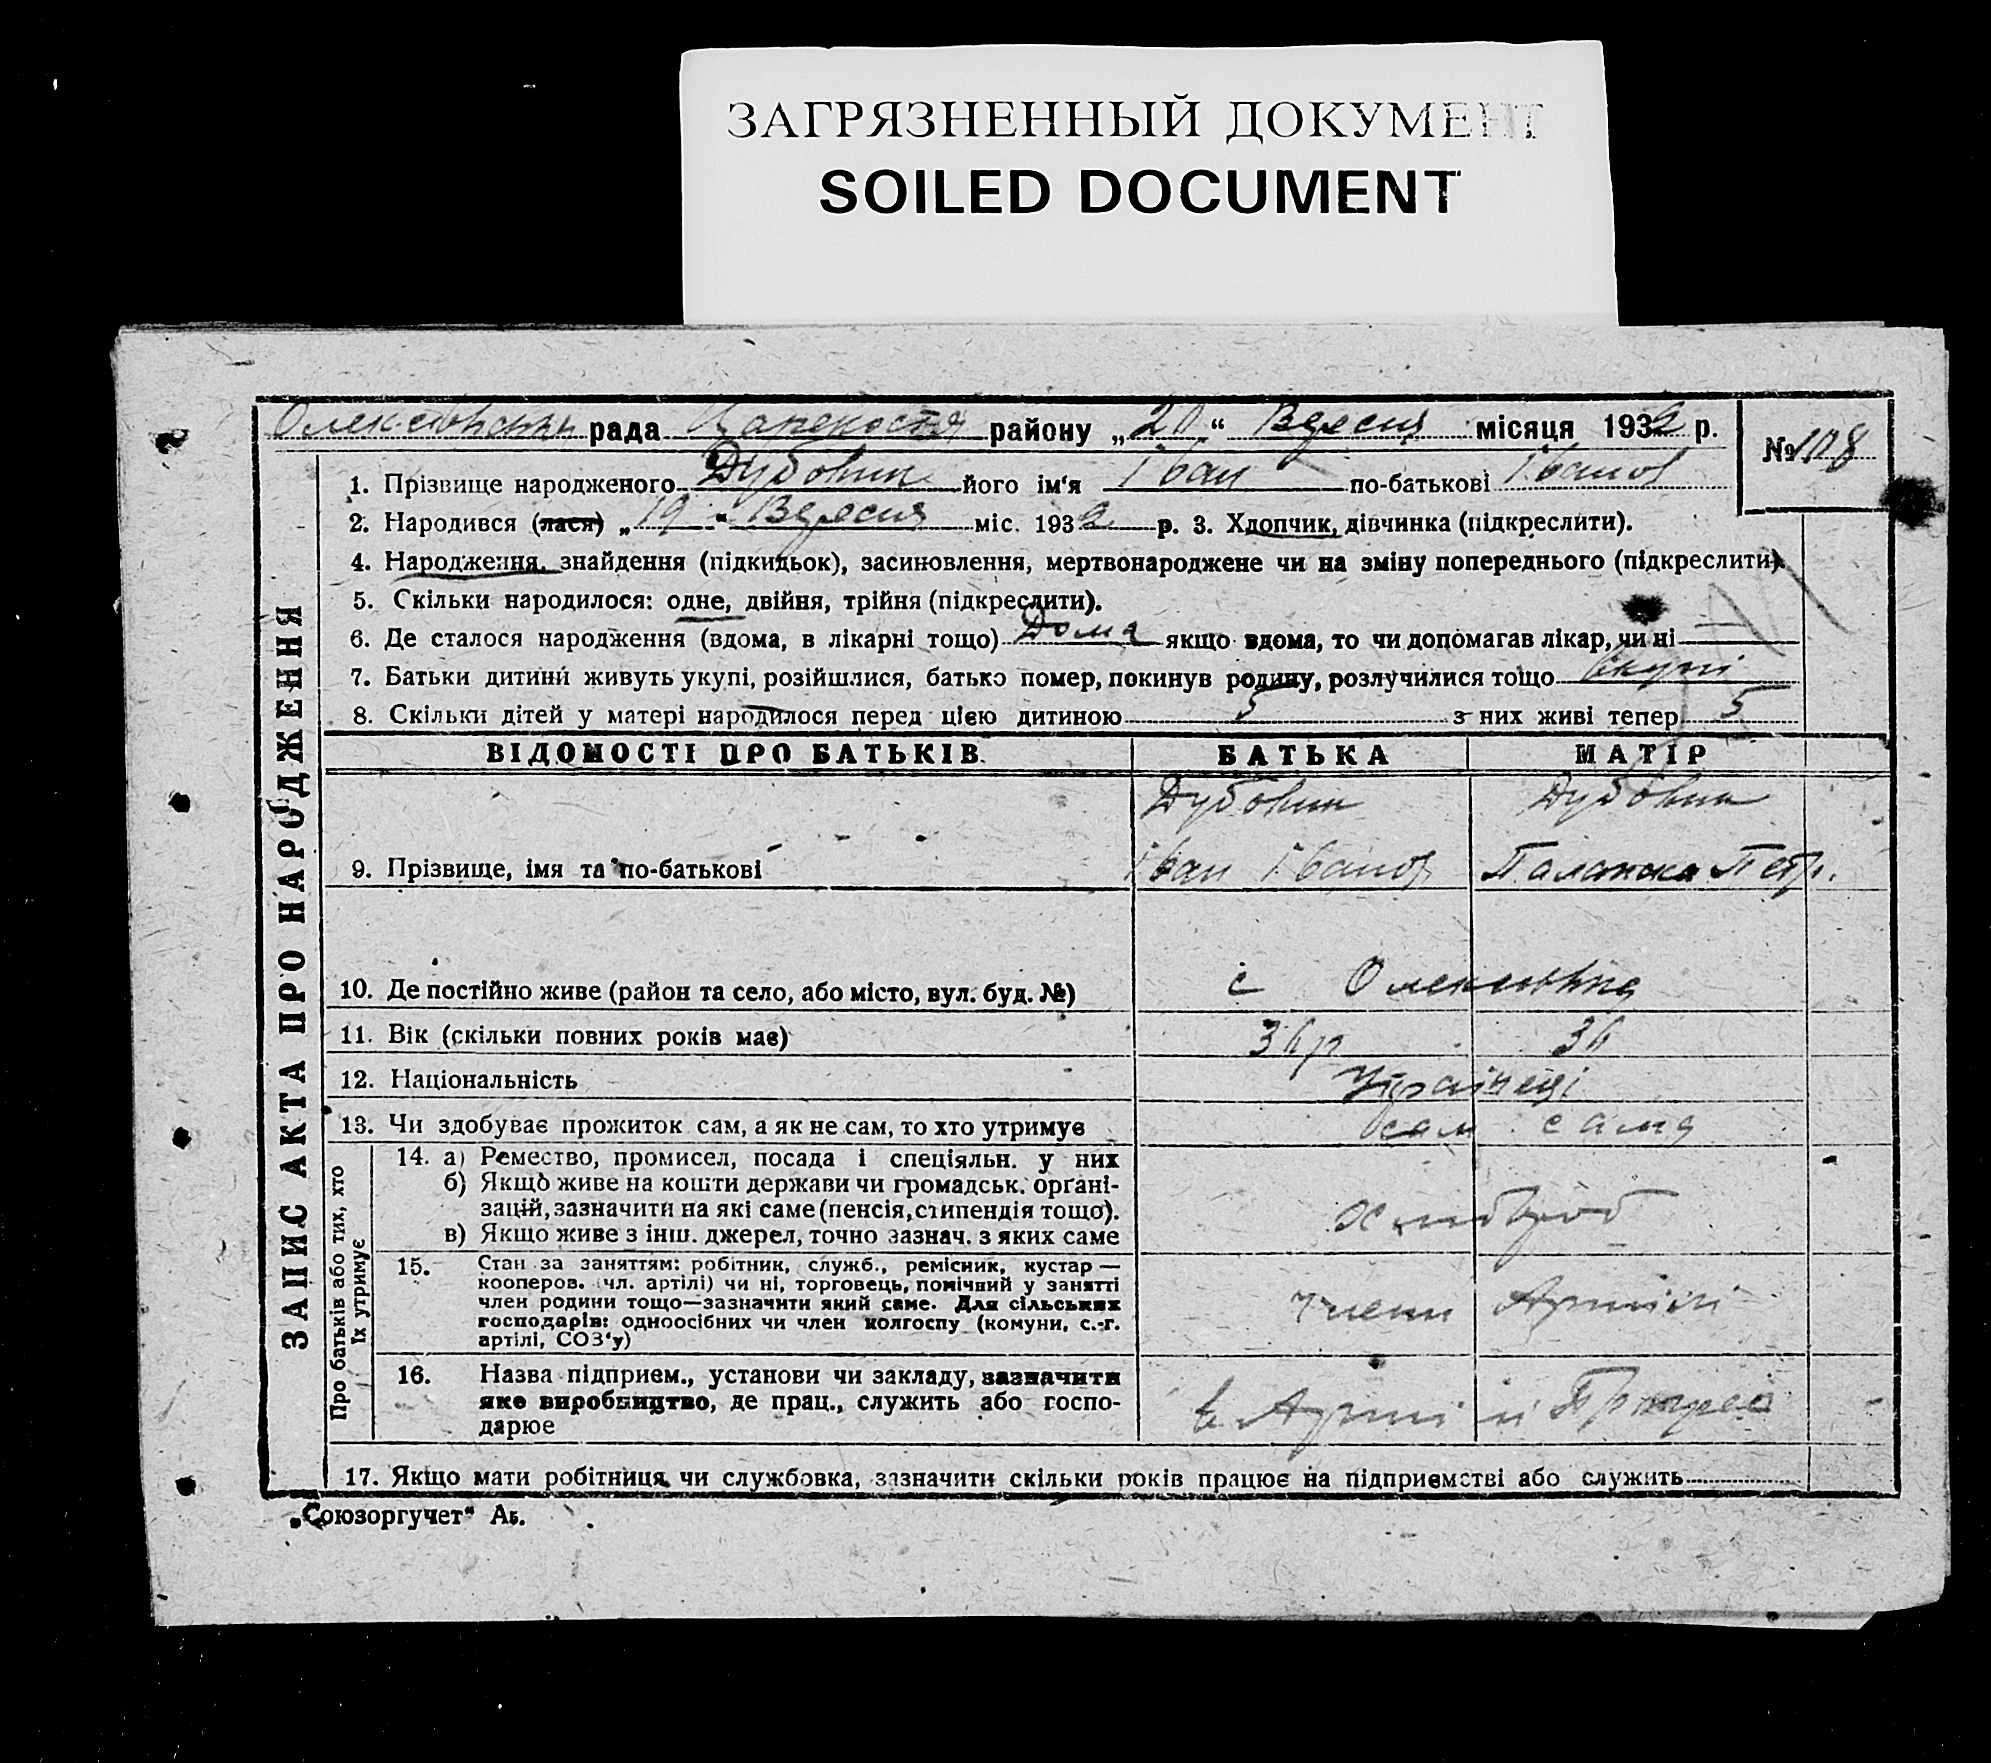 ЗАГРЯЗНЕННЫЙ ДОКУМЕНТ
SOILED DOCUMENT
рада району „20“ Вересня місяця 1932 р.
№ 108
1. Прізвище народженого Дубовик його ім'я Іван по-батькові Іванов
2. Народився (лася) „19“ Вересня міс. 1932 р. 3. Хлопчик, дівчинка (підкреслити).
4. Народження, знайдення (підкидьок), засиновлення, мертвонароджене чи на зміну попереднього (підкреслити).
5. Скільки народилося: одне, двійня, трійня (підкреслити).
6. Де сталося народження (вдома, в лікарні тощо) Дома якщо вдома, то чи допомагав лікар, чи ні
7. Батьки дитини живуть укупі, розійшлися, батько помер, покинув родину, розлучилися тощо Вкупі
8. Скільки дітей у матері народилося перед цією дитиною 5 з них живі тепер 5
ЗАПИС АКТА ПРО НАРОДЖЕННЯ
ВІДОМОСТІ ПРО БАТЬКІВ. БАТЬКА МАТІР
Дубовик Дубовик
9. Прізвище, імя та по-батькові Іван Іванов Палажка Петр.
10. Де постійно живе (район та село, або місто, вул. буд. №) с Олексіївка
11. Вік (скільки повних років має) 36 р 36
12. Національність Українці
13. Чи здобуває прожиток сам, а як не сам, то хто утримує сам сама
Про батьків або тих, хто
їх утримує
14. а) Ремество, промисел, посада і спеціяльн. у них
б) Якщо живе на кошти держави чи громадськ. орґані-
зацій, зазначити на які саме (пенсія, стипендія тощо).
в) Якщо живе з інш. джерел, точно зазнач. з яких саме
хлібороб
15. Стан за заняттям: робітник, служб., ремісник, кустар —
кооперов. (чл. артілі) чи ні, торговець, помічний у занятті
член родини тощо—зазначити який саме. Для сільських
господарів: одноосібних чи член колгоспу (комуни, с.-г.
артілі, СОЗ'у)
члени Артілі
16. Назва підприєм., установи чи закладу, зазначити
яке виробництво, де прац., служить або госпо-
дарює
в Артілі
17. Якщо мати робітниця чи службовка, зазначити скільки років працює на підприємстві або служить
„Союзоргучет“ Аб.